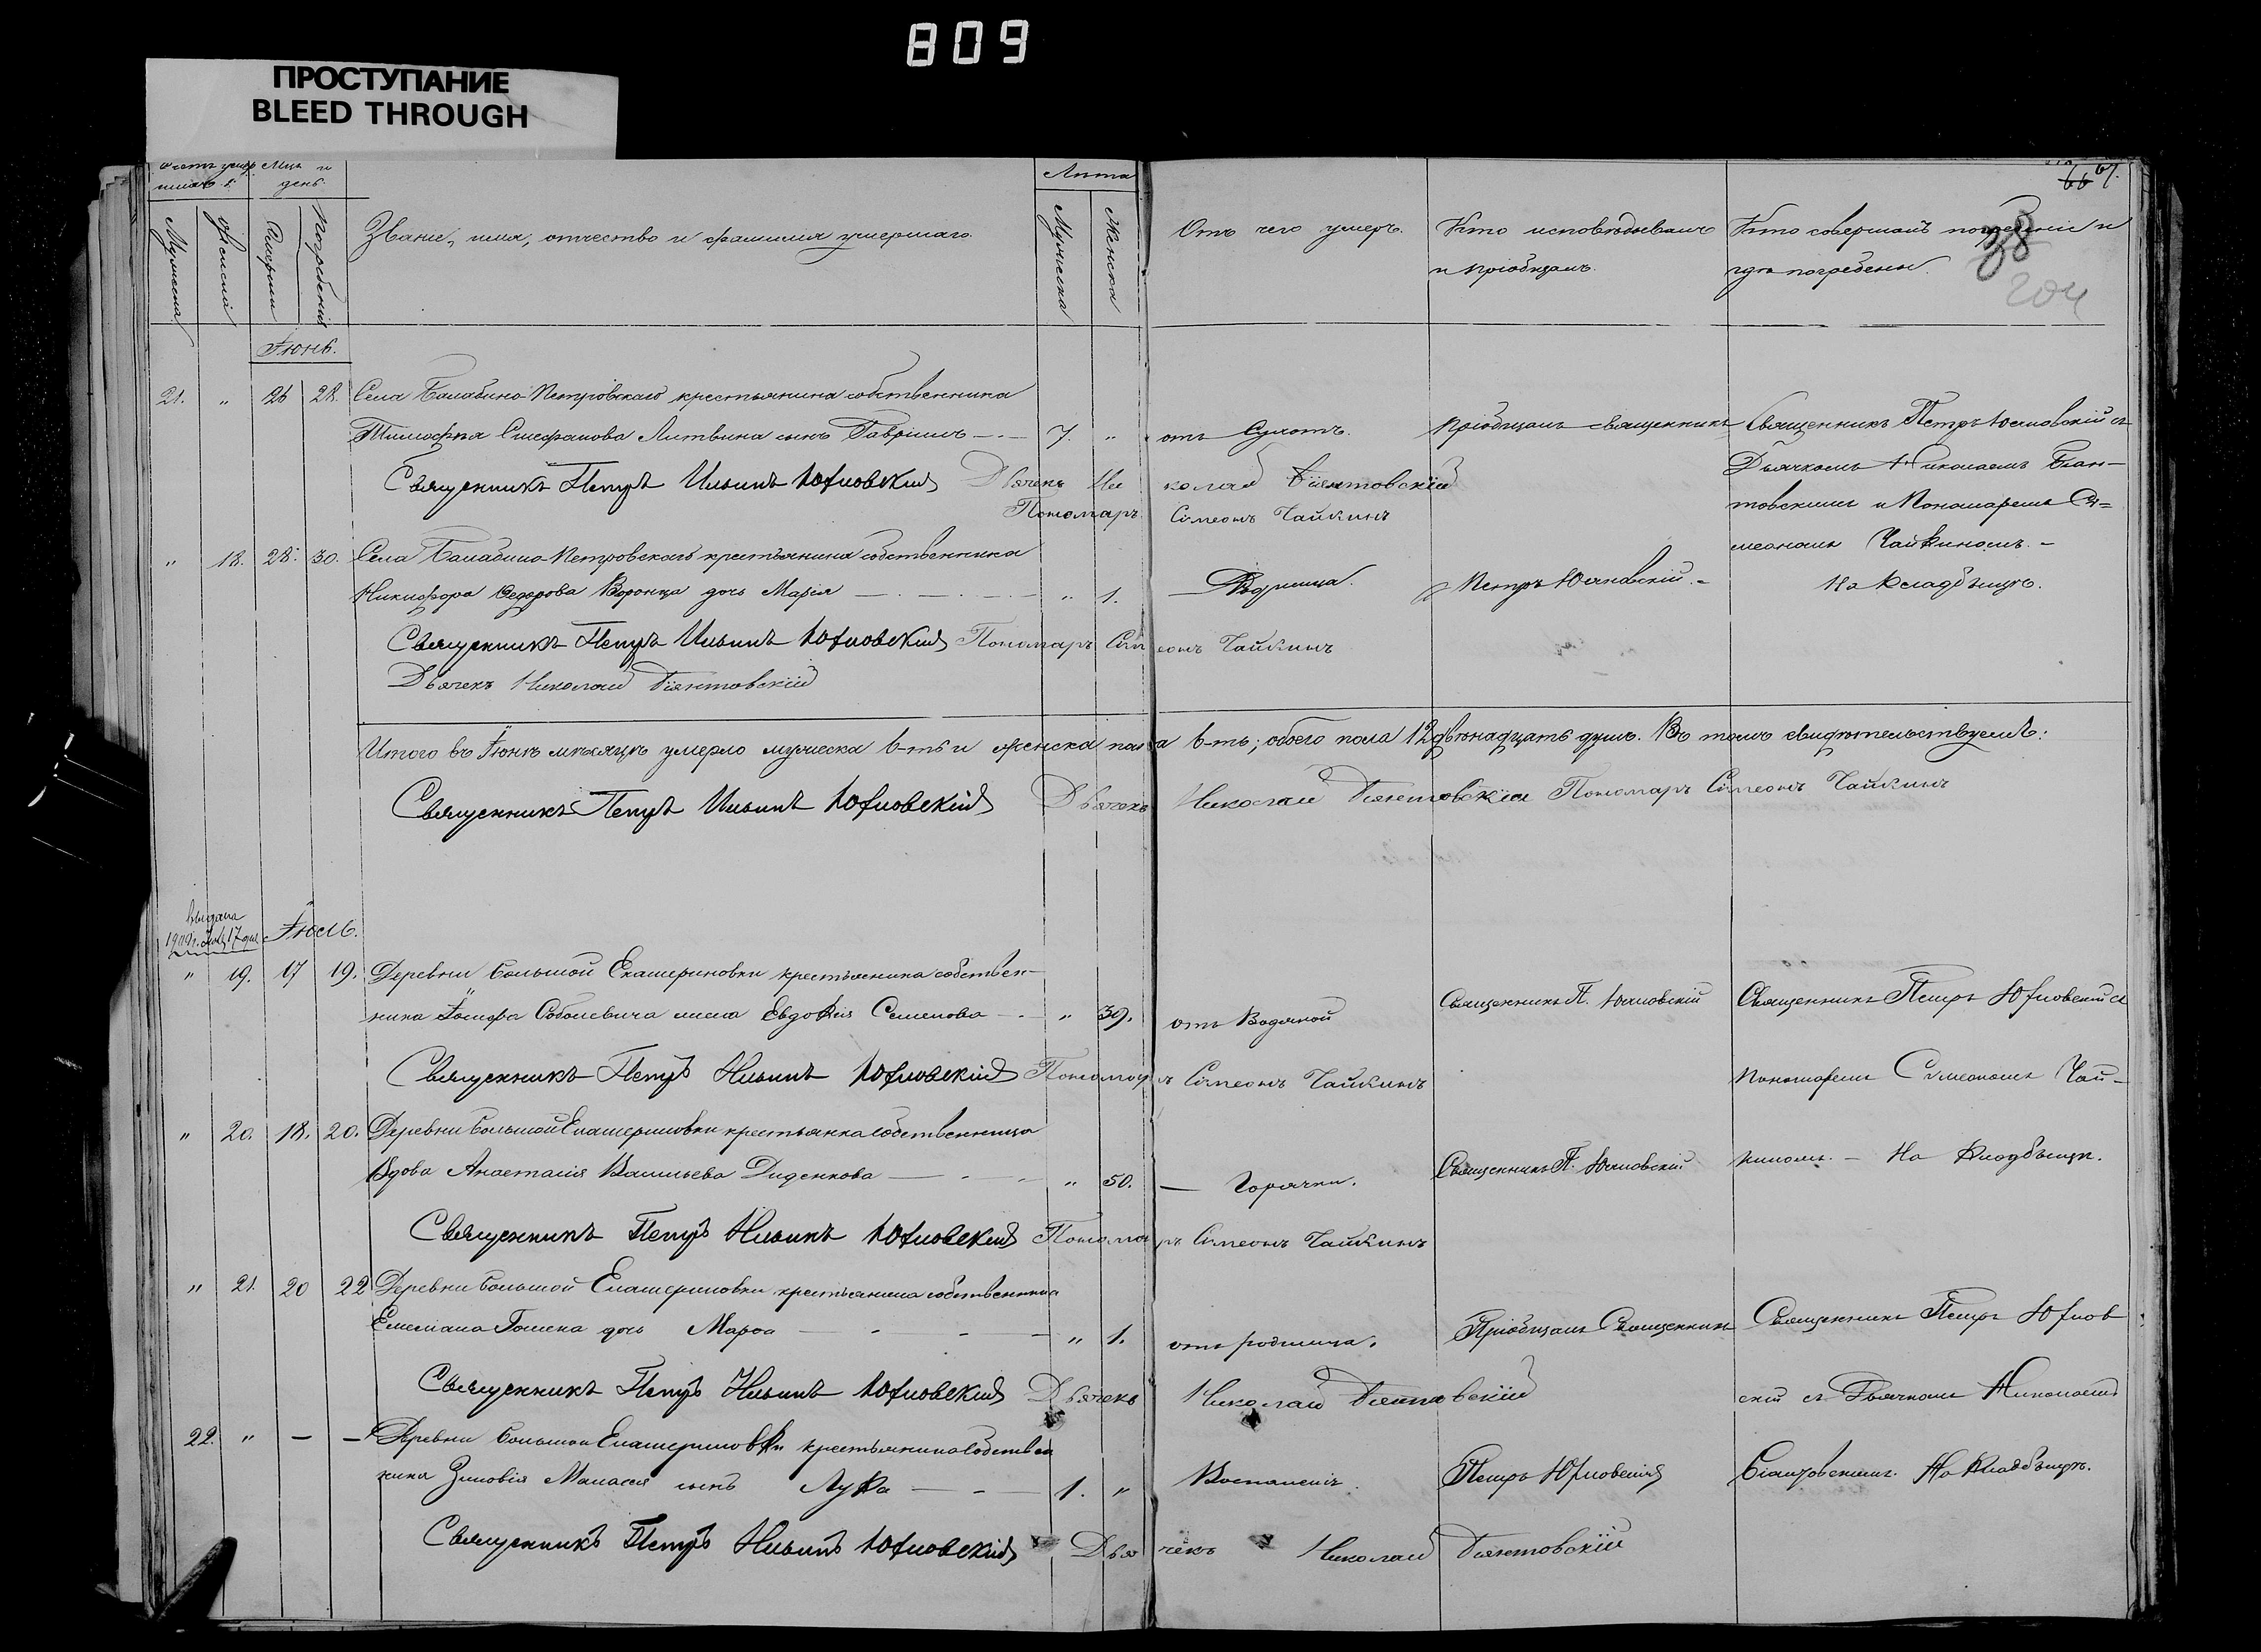 809
ПРОСТУПАНИЕ
BLEED THROUGH
Счетъ умер Мцъ и
день.
Лѣта
66 67.
Мужеска
женскій
Смерти
Погребенія
Званіе, имя, отчество и фамилія умершаго.
Мужеска
Женска
Отъ чего умеръ.
Кто исповѣдывалъ
и пріобщалъ.
Кто совершалъ погребеніе и
гдѣ погребены.
38
204
Іюнь.
21. " 26 28. Села Балабино-Петровскаго крестьянина собственника
Тимофея Стефанова Литвина сынъ Гавріилъ — 7. " отъ Сухотъ. пріобщалъ священникъ Священникъ Петръ Юхновскій съ
Священникъ Петръ Ильинъ Юхновскій Дьячекъ Николай Біянтовскій
Дьячкомъ Николаемъ Біан-
Пономаръ Сімеонъ Чайкинъ
товскимъ и Пономаремъ Си=
меономъ Чайкиномъ. –
" 18. 28. 30. Села Балабино-Петровскаго крестьянина собственника
Никифора Федорова Воронца дочь Марія — " 1. — Петръ Юхновскій. – На кладбищѣ.
Священникъ Петръ Ильинъ Юхновскій Пономаръ Сімеонъ Чайкинъ
Дьячекъ Николай Біянтовскій
Итого въ Іюнѣ мѣсяцѣ умерло мужеска 6-ть и женска пола 6-ть; обоего пола 12 двѣнадцать душъ. Въ томъ свидѣтельствуемъ:
Священникъ Петръ Ильинъ Юхновскій Дьячекъ Николай Біянтовскій Пономаръ Сімеонъ Чайкинъ
выдана
17 дня
Іюль.
" 19. 17 19. Деревни Большой Екатериновки крестьянина собствен-
ника Іосифа Соболевича жена Евдокія Семенова — " 39. отъ Водяной Священникъ П. Юхновскій Священникъ Петръ Юхновскій съ
Священникъ Петръ Ильинъ Юхновскій Пономаръ Сімеонъ Чайкинъ
Пономаремъ Симеономъ Чай-
" 20. 18. 20. Деревни Большой Екатериновки крестьянка собственница
Вдова Анастасія Васильева Диденкова — " 50. — Горячки. Священникъ П. Юхновскій киномъ. – На Кладбищѣ.
Священникъ Петръ Ильинъ Юхновскій Пономаръ Сімеонъ Чайкинъ
" 21. 20 22 Деревни Большой Екатериновки крестьянина собственника
Емеліана дочь Марфа — " 1. отъ родимца. Пріобщалъ Священникъ Священникъ Петръ Юхнов
Священникъ Петръ Ильинъ Юхновскій Дьячекъ Николай Біянтовскій
скій съ Дьячкомъ Николаемъ
22. " — — Деревни Большой Екатериновки крестьянина собствен
ника Зиновія сынъ Лука — 1. " Воспаленія. Петръ Юхновскій Біантовскимъ. На Кладбищѣ.
Священникъ Петръ Ильинъ Юхновскій Дьячекъ Николай Біянтовскій